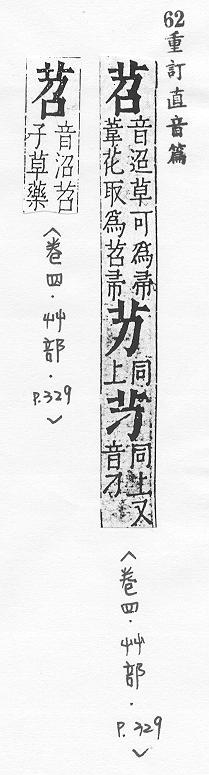 62重訂直音篇
苕
音迢草可為帚
葦花取為苕帚
芀
同
上
芀
同上又
音刀
〈卷四·艸部·P.329〉
苕
音沼苕
子草藥
〈卷四·艸部·P.329〉